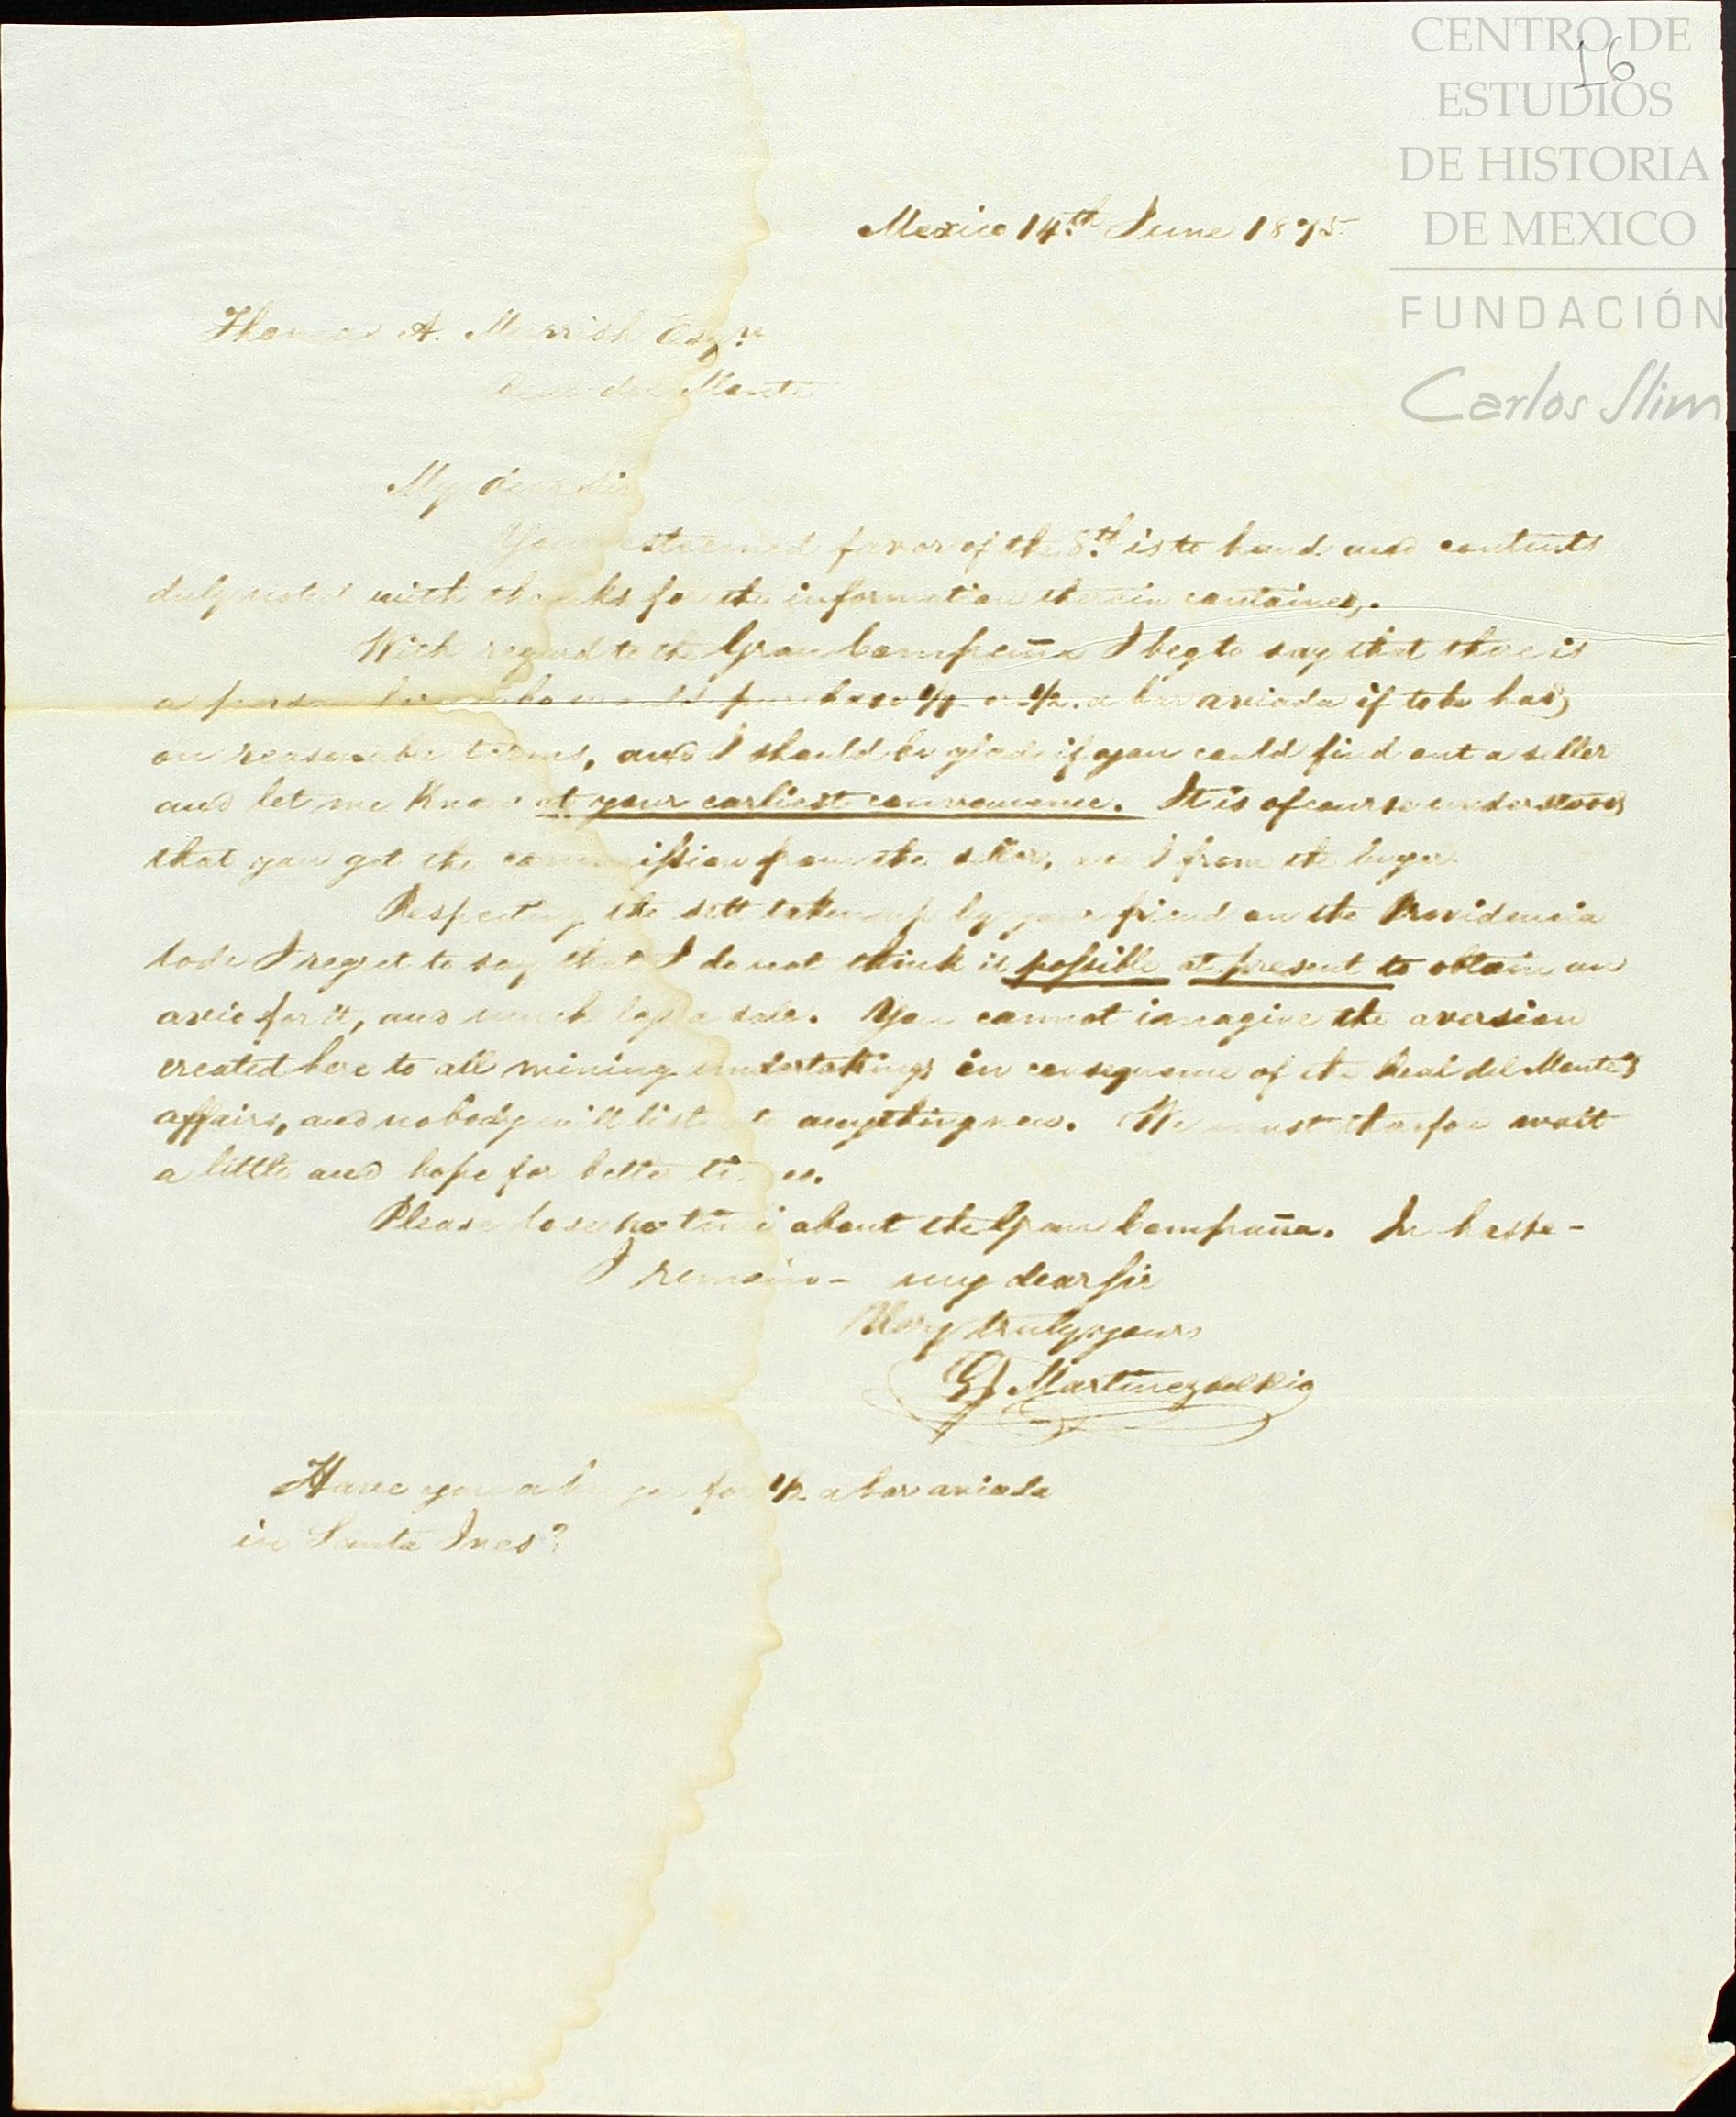 CENTRO DE
ESTUDIOS
DE HISTORIA
DE MEXICO
FUNDACIÓN
Carlos Slim
16
Mexico 14th June 1875
Thomas A. Morrish Esqre
Real del Monte
My dear Sir
Your esteemed favor of the 8th is to hand and contents
duly noted with thanks for the information therein contained.
With regard to the Gran Compañia I beg to say that there is
a person here who would purchase 1/4 or 1/2 a bar aviada if to be had
on reasonable terms, and I should be glad if you could find out a seller
and let me know at your earliest convenience. It is of course understood
that you get the commission from the seller, and I from the buyer.
Respecting the sett taken up by your friend on the Providencia
lode I regret to say that I do not think it possible at present to obtain an
avio for it, and much less a sale. You cannot imagine the aversion
created here to all mining undertakings in consequence of the Real del Monte's
affairs, and nobody will listen to anything new. We must therefore wait
a little and hope for better times.
Please lose no time about the Gran Compañia. In haste -
I remain - my dear Sir
Very truly yours
Martinez del Rio
Have you a buyer for 1/2 a bar aviada
in Santa Ines?